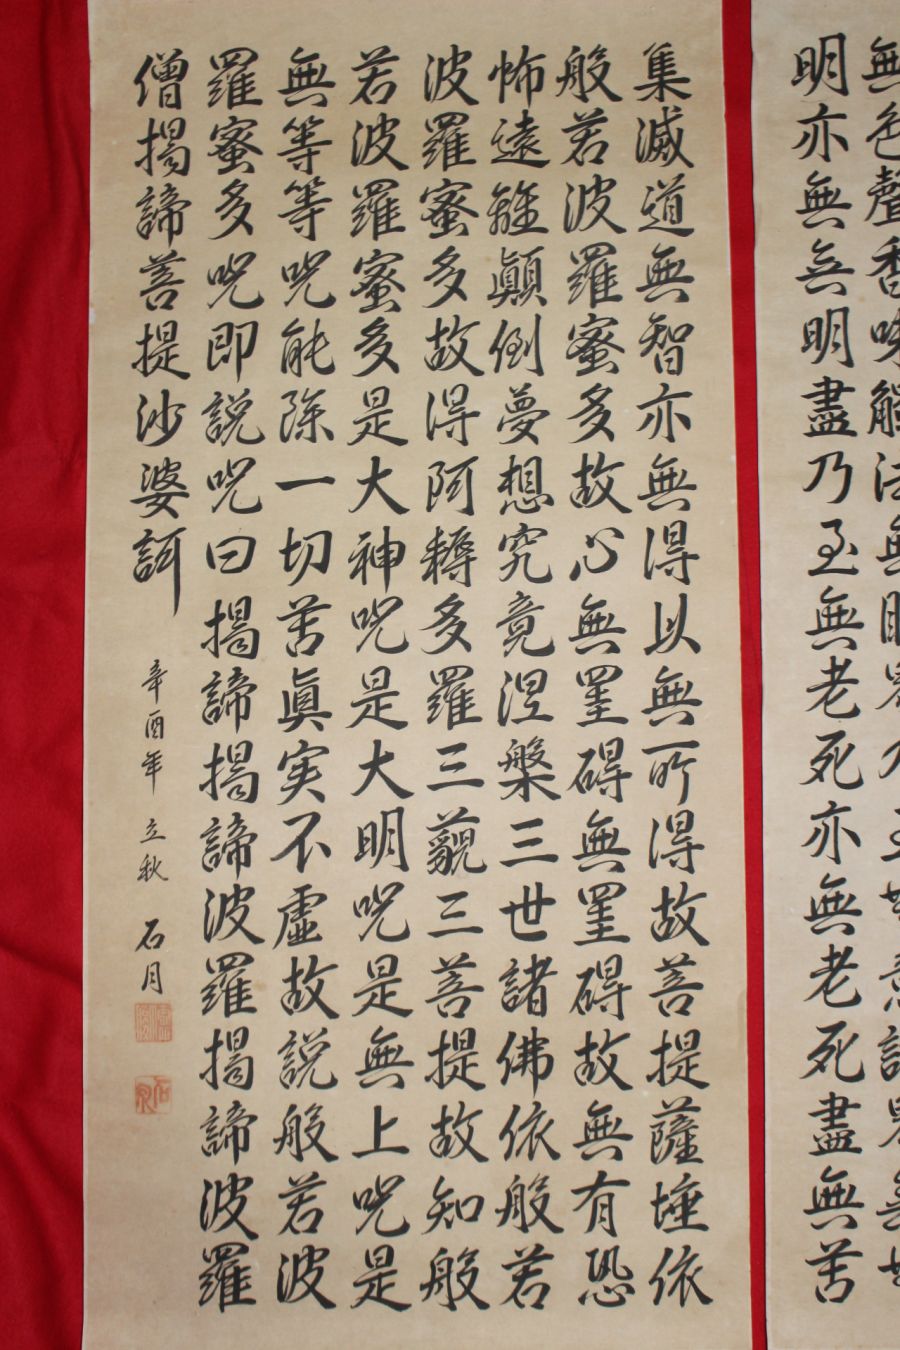 無色聲香味觸法無眼界乃至無意識界無無
明亦無無明盡乃至無老死亦無老死盡無苦
集滅道無智亦無得以無所得故菩提薩埵依
般若波羅蜜多故心無罣碍無罣碍故無有恐
怖遠離顛倒夢想究竟涅槃三世諸佛依般若
波羅蜜多故得阿耨多羅三藐三菩提故知般
若波羅蜜多是大神呪是大明呪是無上呪是
無等等呪能除一切苦眞実不虚故説般若波
羅蜜多呪即説呪曰揭諦揭諦波羅揭諦波羅
僧揭諦菩提沙婆訶
辛酉年 立秋 石月